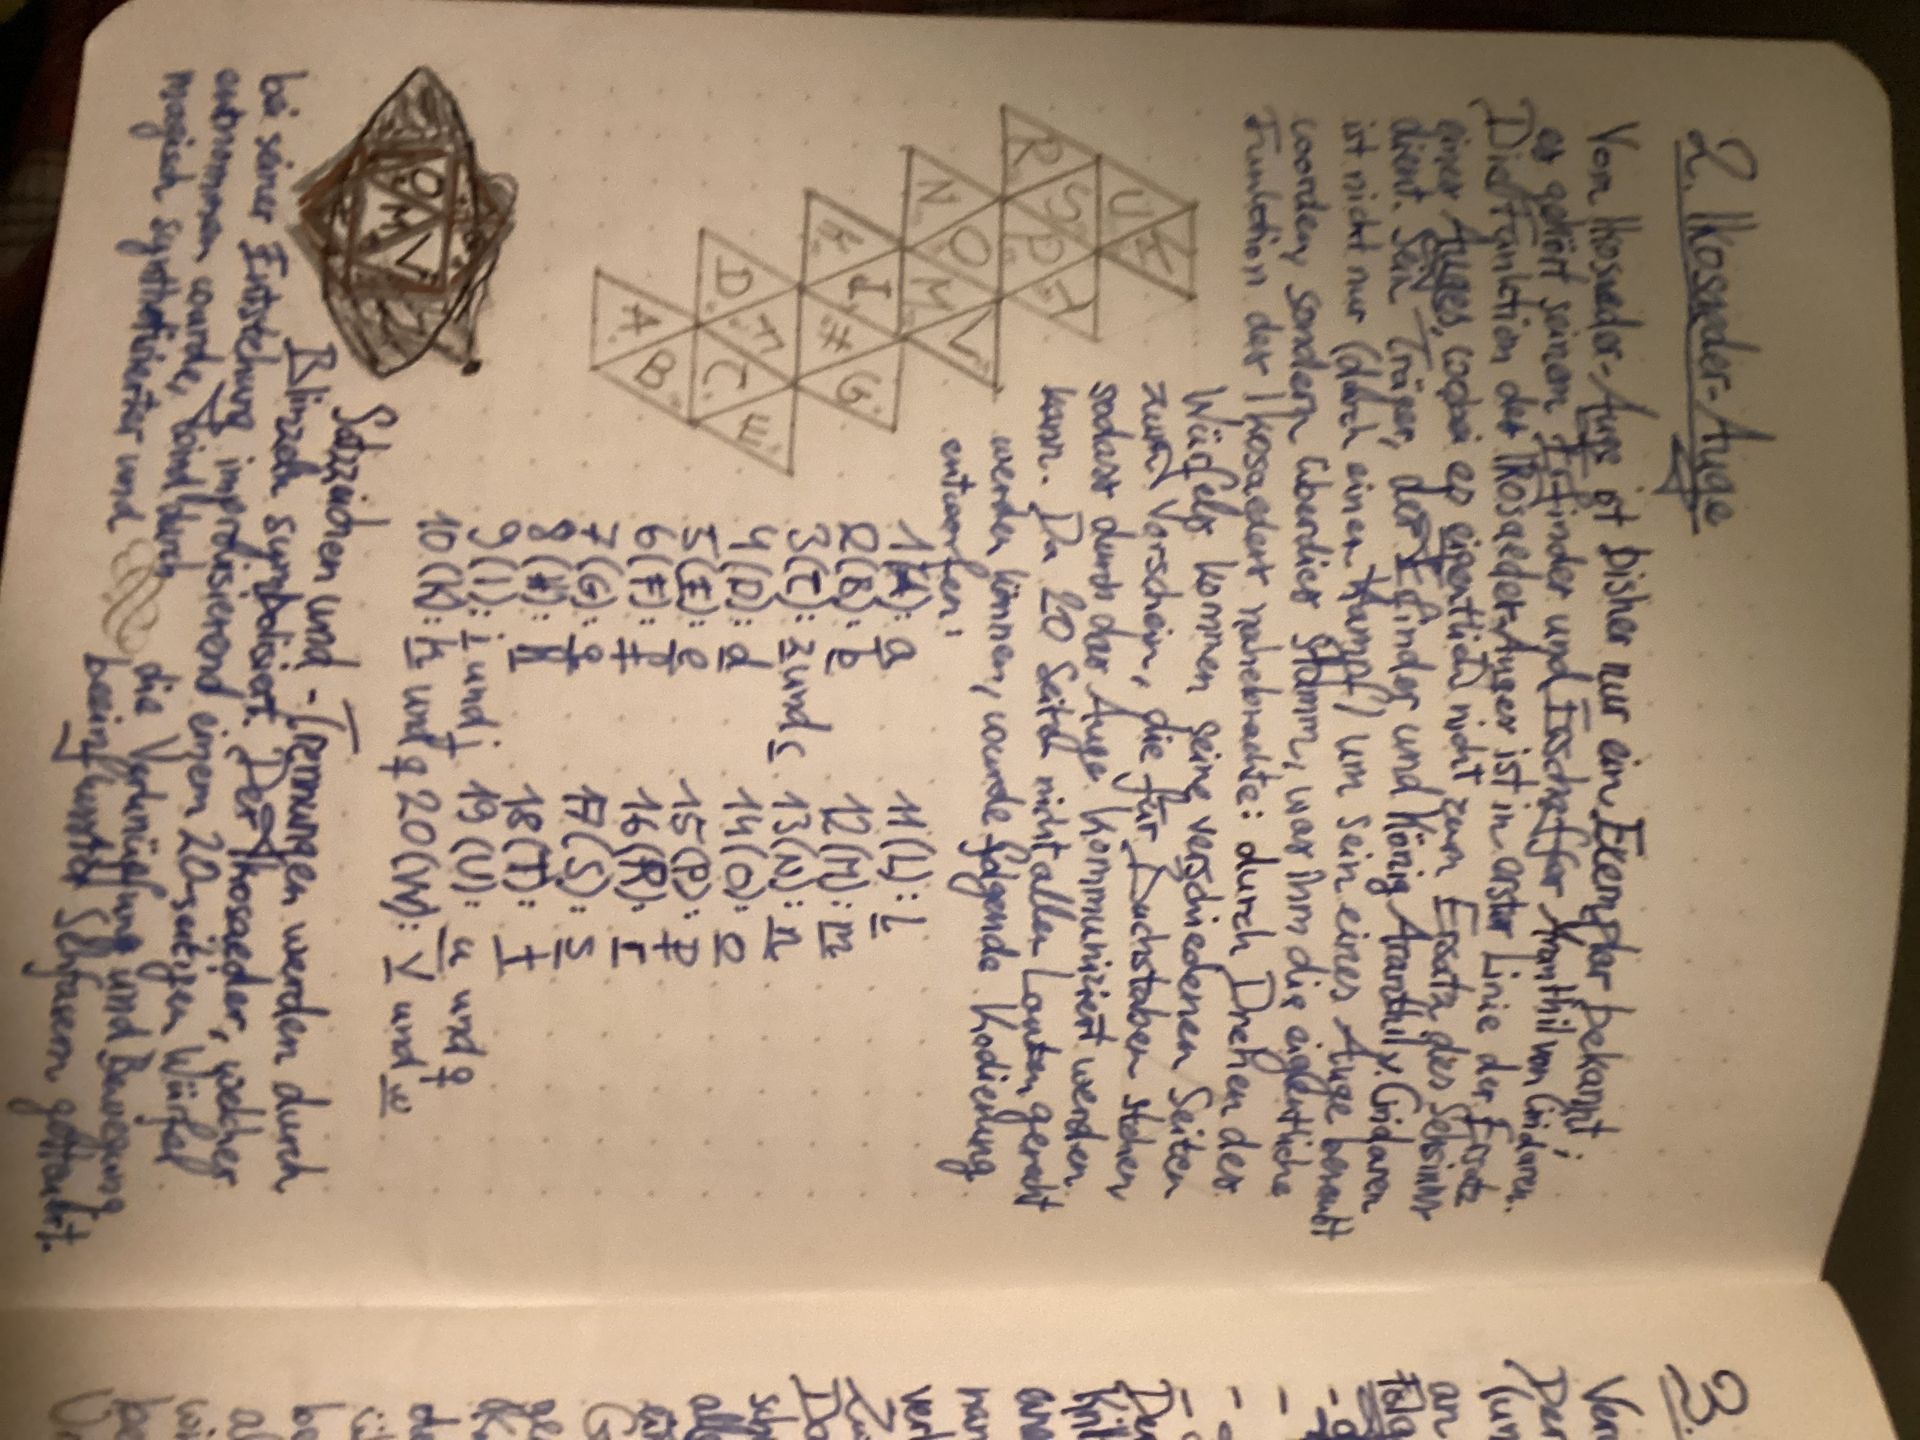 2. Ikosaeder-Auge
Vom Ikosaeder-Auge ist bisher nur ein Exemplar bekannt;
es gehört seinem Erfinder und Erschaffer Aranthil von Ciridaren.
Die Funktion des Ikosaeder-Auges ist in erster Linie der Ersatz
einer Auges, wobei es eigentlich nicht zum Ersatz des Sehsinns
dient. Sein Träger, der Erfinder und König Aranthil v. Ciridaren
ist nicht nur (durch einen Kampf) um sein eines Auge beraubt
worden, sondern überdies stumm, was ihm die eigentliche
Funktion des Ikosaeders nahebrachte: durch Drehen des
Würfels kommen seine verschiedenen Seiten
zum Vorschein, die für Buchstaben stehen
sodass durch das Auge kommuniziert werden
kann. Da 20 Seiten nicht allen Lauten gerecht
werden können, wurde folgende Kodierung
entworfen:
U K
R S P T
N O M V
K I H G
D F C E
A B
1(A): a 11(L): l
2(B): b 12(M): m
3(C): z und c 13(N): n
4(D): d 14(O): o
5(E): e 15(P): p
6(F): f 16(R): r
7(G): g 17(S): s
8(H): h 18(T): t
9(I): i und j 19(U): u und
10(K): k und q 20(W): v und w
O M V
Satzzeichen und -Trennungen werden durch
Blinzeln symbolisiert. Der Ikosaeder, welcher
bei seiner Entstehung improvisierend einem 20-seitigen Würfel
entnommen wurde, wird durch die Verknüpfung und Bewegung
magisch synthetisierter und beeinflusster Sehfasern gesteuert.
3.